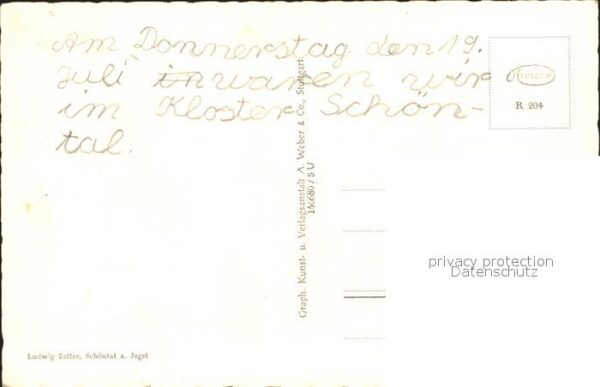 Am Donnerstag den 19.
Juli in waren wir
im Kloster Schön-
tal.
R 204
Graph. Kunst- u. Verlagsanstalt A. Weber & Co., Stuttgart
150680/5 U
privacy protection
Datenschutz
Ludwig Zeller, Schöntal a. Jagst